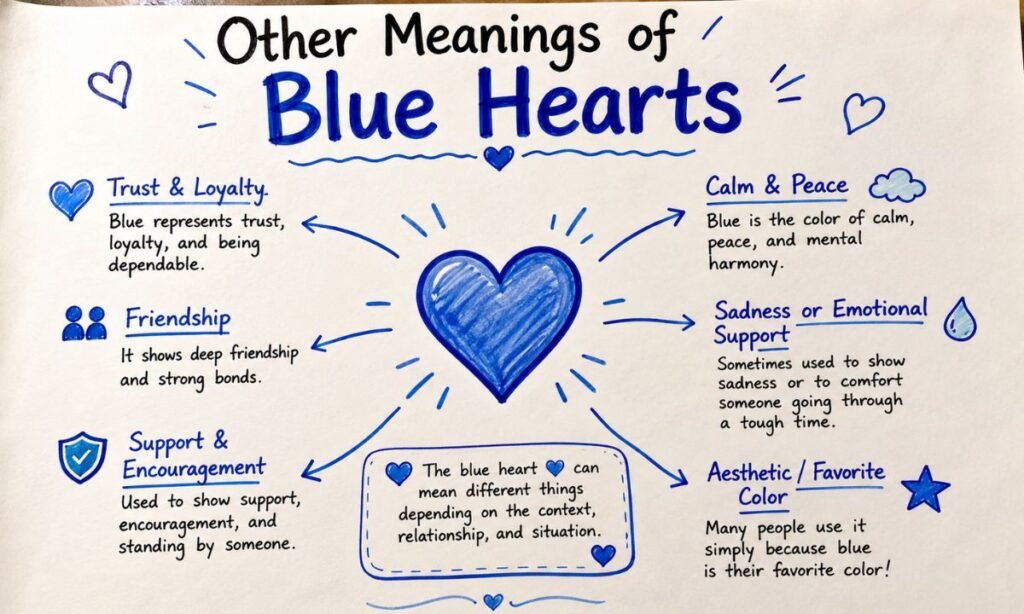 Other Meanings of
Blue Hearts
Trust & Loyalty.
Blue represents trust,
loyalty, and being
dependable.
Friendship
It shows deep friendship
and strong bonds.
Support &
Encouragement
Used to show support,
encouragement, and
standing by someone.
Calm & Peace
Blue is the color of calm,
peace, and mental
harmony.
Sadness or Emotional
Support
Sometimes used to show
sadness or to comfort
someone going through
a tough time.
Aesthetic / Favorite
Color
Many people use it
simply because blue
is their favorite color!
The blue heart 💙 can
mean different things
depending on the context,
relationship, and situation.